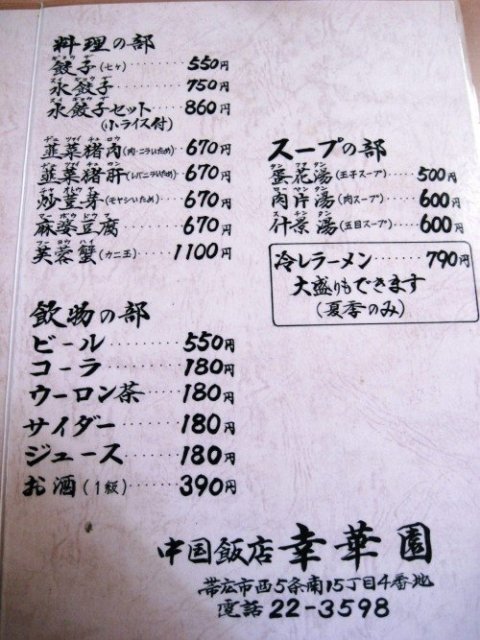 料理の部
餃子(七ケ)……550円
水餃子……750円
水餃子セット……860円
(小ライス付)
韮菜猪肉(肉・ニラいため)……670円
韮菜猪肝(レバニラいため)……670円
炒荳芽(モヤシいため)……670円
麻婆豆腐……670円
芙蓉蟹(カニ玉)……1100円
スープの部
蛋花湯(玉子スープ)……500円
肉片湯(肉スープ)……600円
什景湯(五目スープ)……600円
冷しラーメン……790円
大盛りもできます
(夏季のみ)
飲物の部
ビール……550円
コーラ……180円
ウーロン茶……180円
サイダー……180円
ジュース……180円
お酒(1級)……390円
中国飯店 幸華園
帯広市西5条南15丁目4番地
電話22-3598